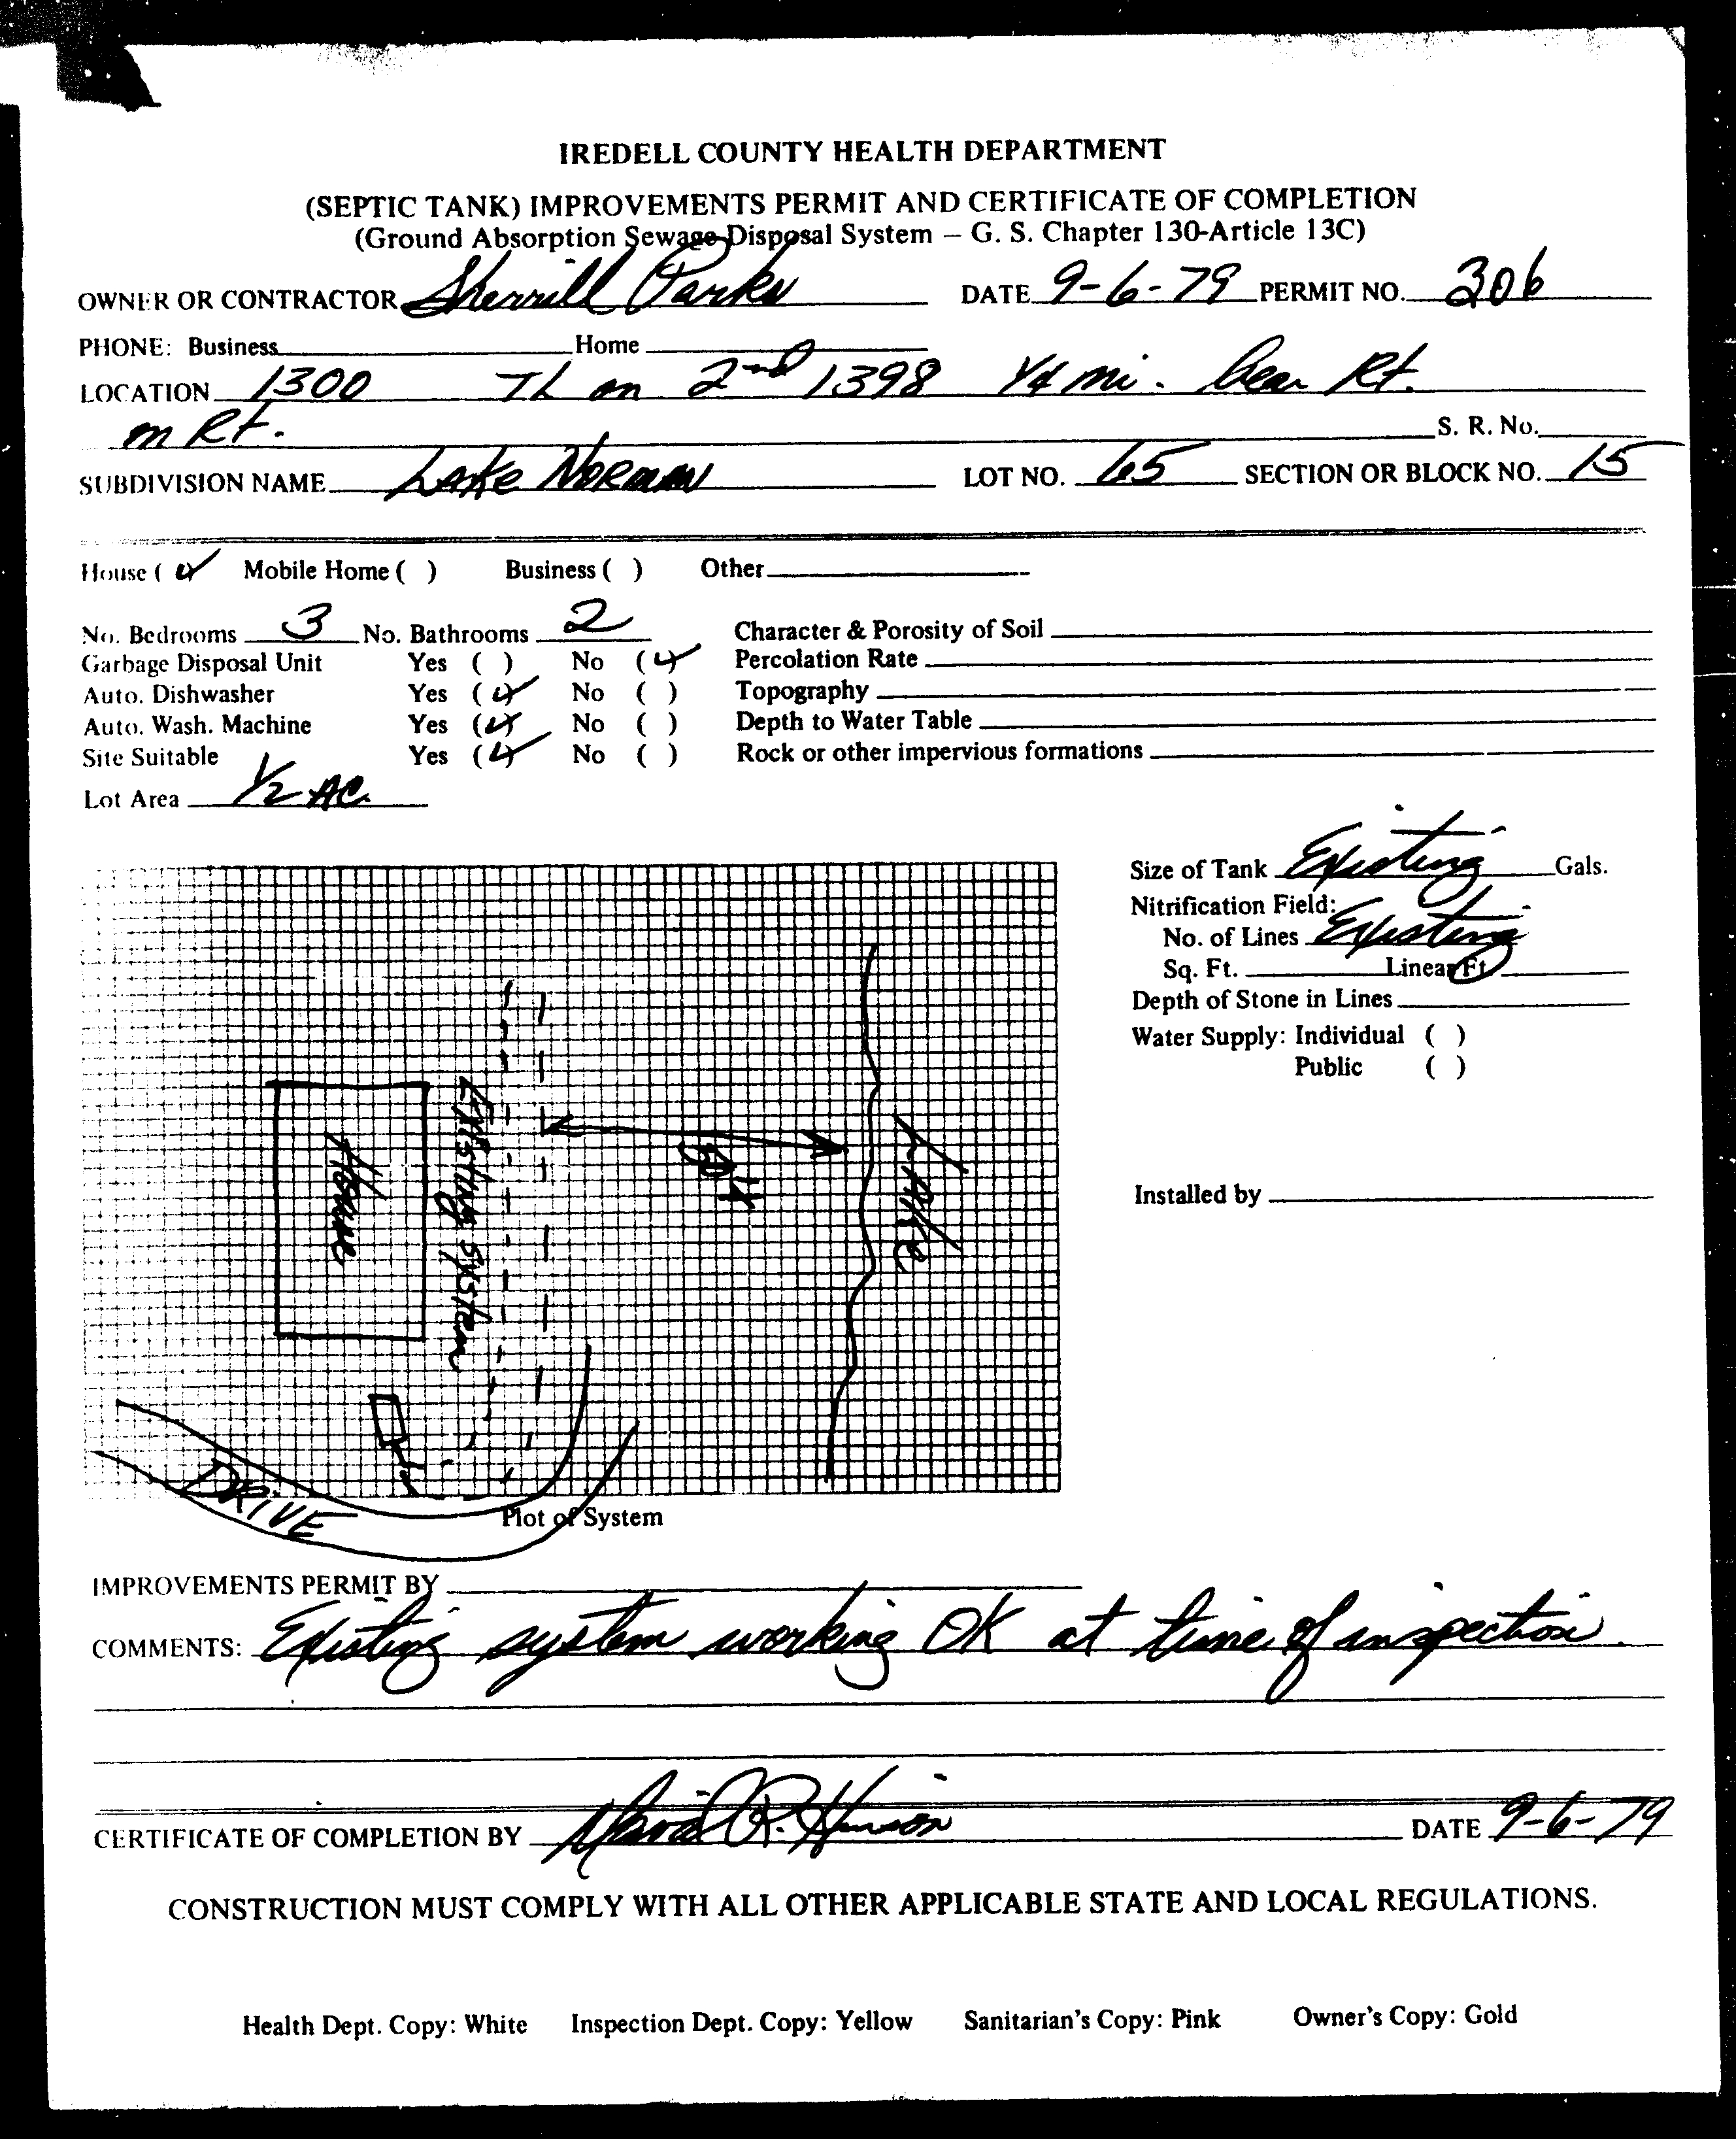 IREDELL COUNTY HEALTH DEPARTMENT
(SEPTIC TANK) IMPROVEMENTS PERMIT AND CERTIFICATE OF COMPLETION
(Ground Absorption Sewage Disposal System – G. S. Chapter 130-Article 13C)
OWNER OR CONTRACTOR Sherrill Parks DATE 9-6-79 PERMIT NO. 306
PHONE: Business Home
LOCATION 1300 TL on 2nd 1398 1/4 mi. bear Rt.
on Rt. S. R. No.
SUBDIVISION NAME Lake Norman LOT NO. 65 SECTION OR BLOCK NO. 15
House (✓) Mobile Home ( ) Business ( ) Other
No. Bedrooms 3 No. Bathrooms 2 Character & Porosity of Soil
Garbage Disposal Unit Yes ( ) No (✓) Percolation Rate
Auto. Dishwasher Yes (✓) No ( ) Topography
Auto. Wash. Machine Yes (✓) No ( ) Depth to Water Table
Site Suitable Yes (✓) No ( ) Rock or other impervious formations
Lot Area 1/2 AC.
Size of Tank Existing Gals.
Nitrification Field:
No. of Lines Existing
Sq. Ft. Linear Ft.
Depth of Stone in Lines
Water Supply: Individual ( )
Public ( )
Installed by
House
Existing System
Lake
DRIVE
Plot of System
IMPROVEMENTS PERMIT BY
COMMENTS: Existing system working OK at time of inspection.
CERTIFICATE OF COMPLETION BY David R. Hinson DATE 9-6-79
CONSTRUCTION MUST COMPLY WITH ALL OTHER APPLICABLE STATE AND LOCAL REGULATIONS.
Health Dept. Copy: White Inspection Dept. Copy: Yellow Sanitarian's Copy: Pink Owner's Copy: Gold